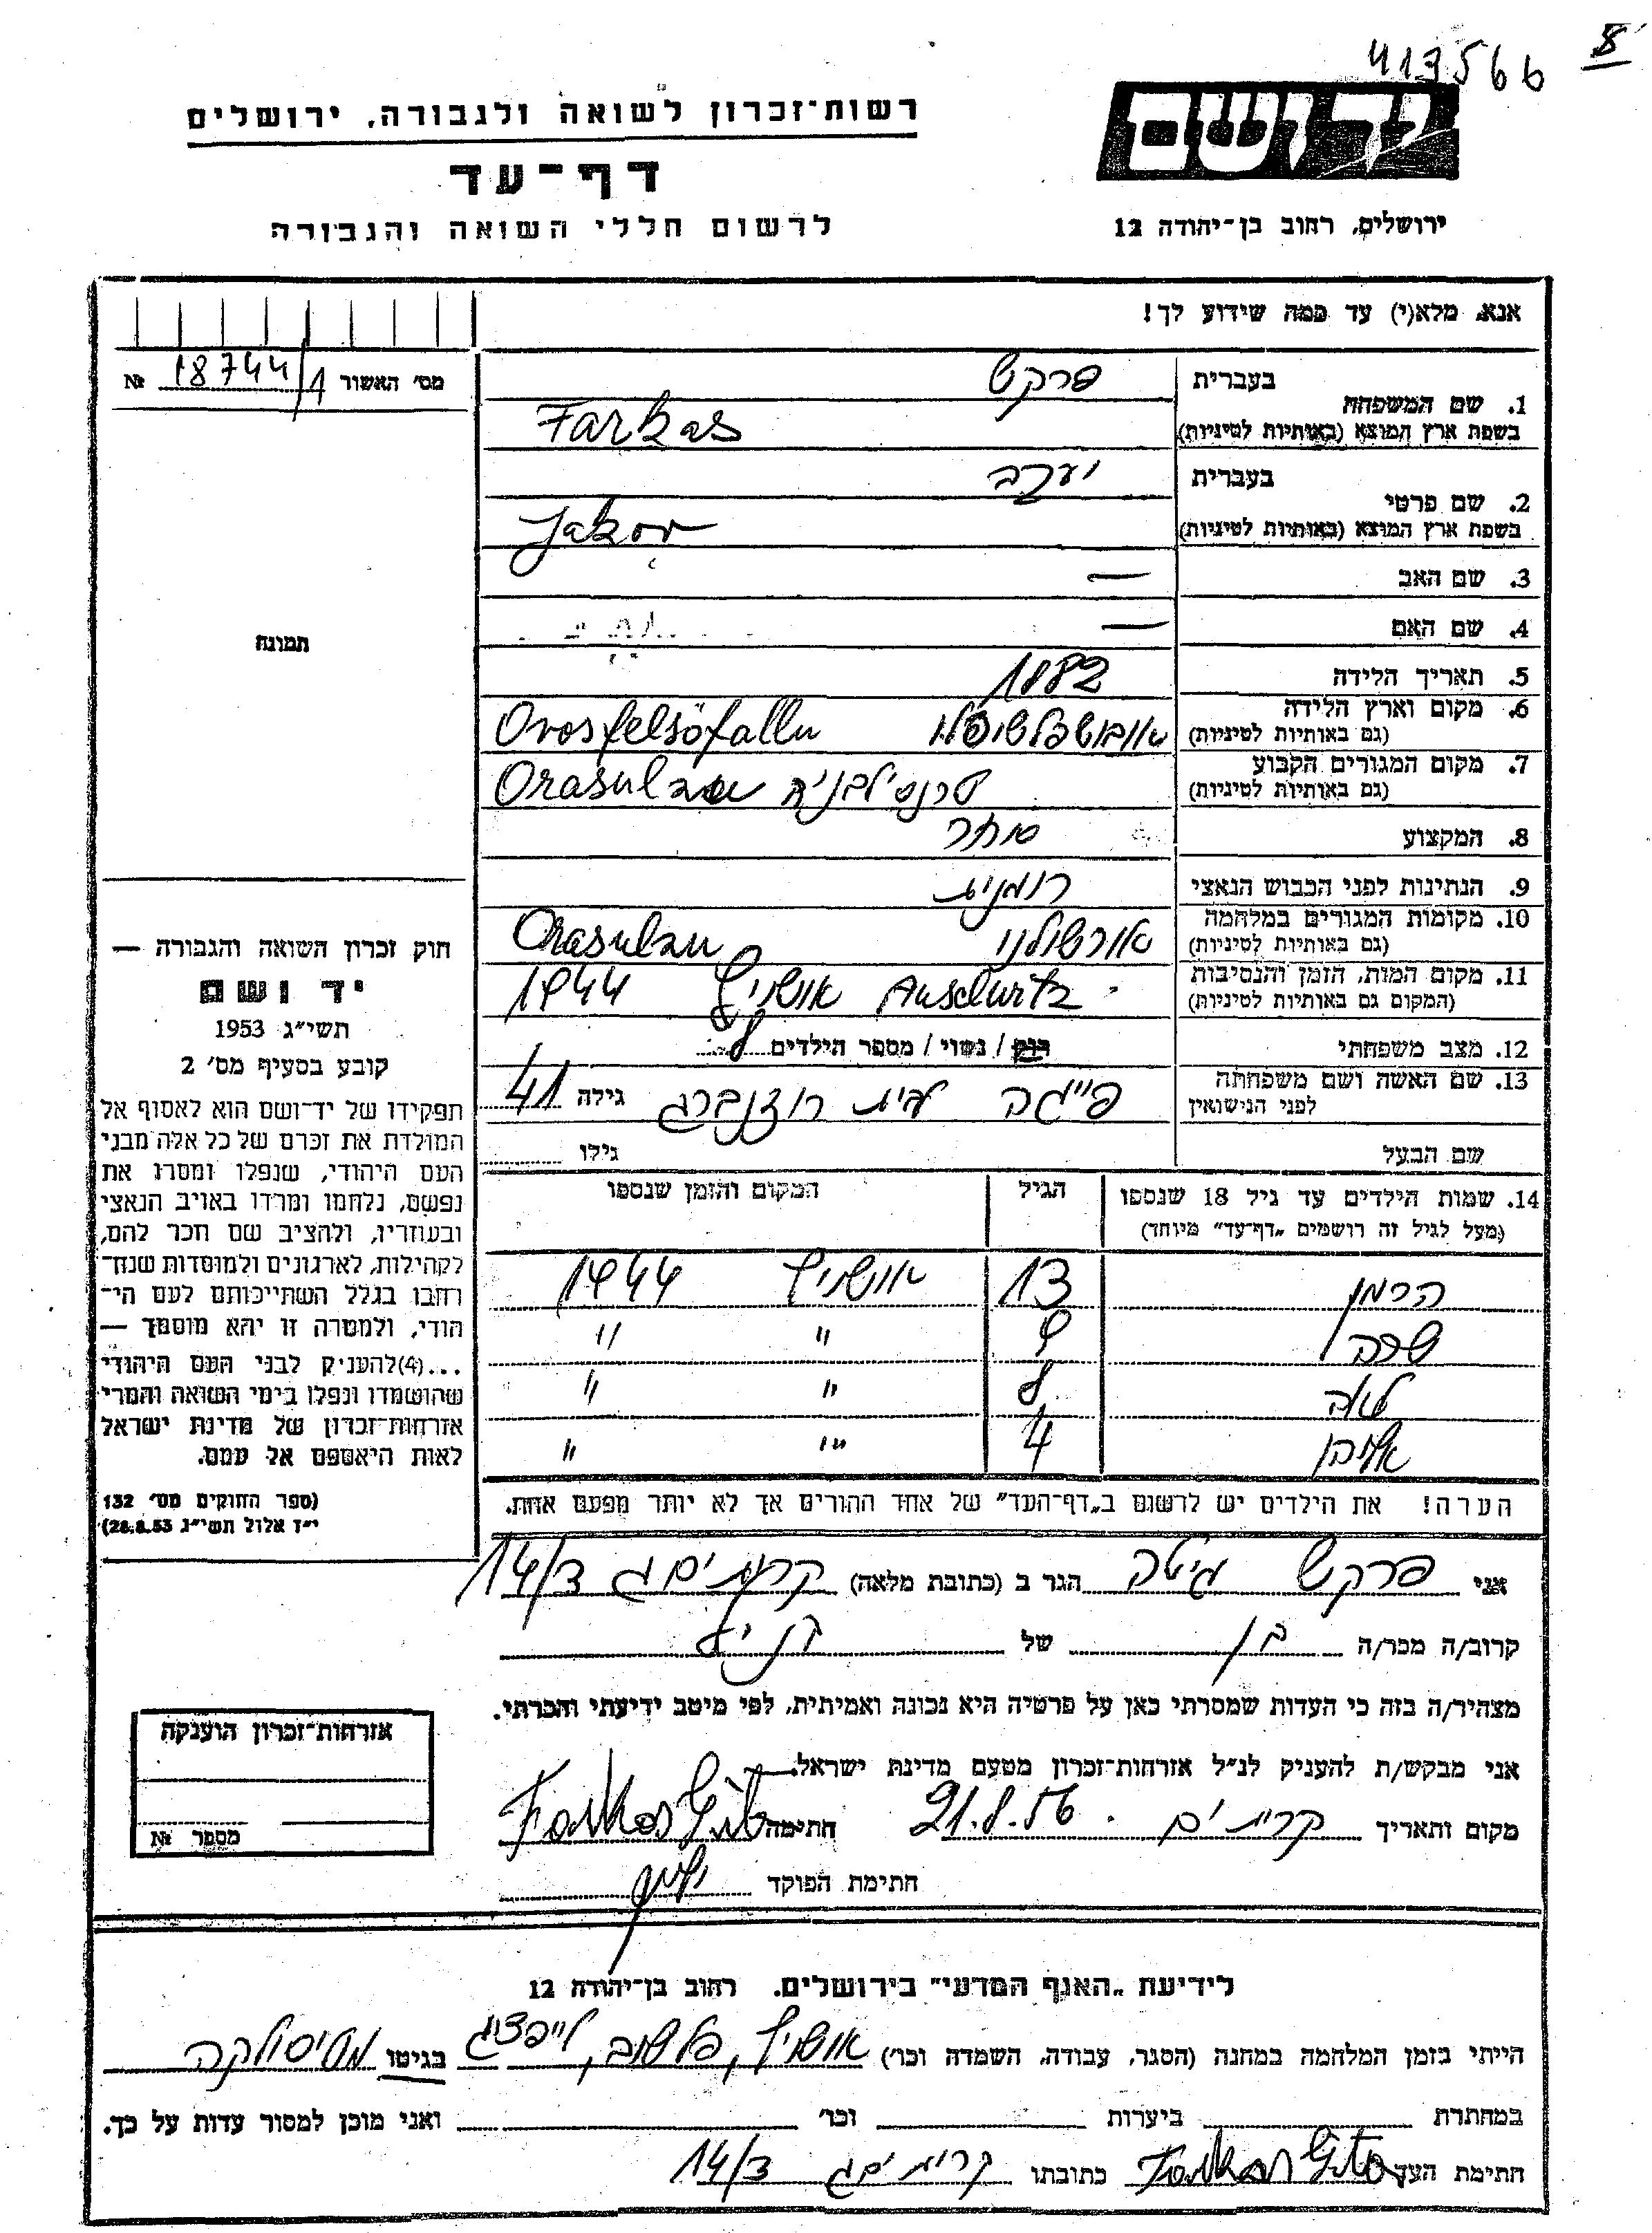 413566
8
יד ושם
ירושלים, רחוב בן־יהודה 12
רשות־זכרון לשואה ולגבורה, ירושלים
דף־עד
לרשום חללי השואה והגבורה
אנא, מלא(י) עד כמה שידוע לך!
מס׳ האשור 18744/1 №
1. שם המשפחה
בעברית פרקש
בשפת ארץ המוצא (באותיות לטיניות) Farkas
2. שם פרטי
בעברית יעקב
בשפת ארץ המוצא (באותיות לטיניות) Jakov
3. שם האב —
4. שם האם —
5. תאריך הלידה 1882
6. מקום וארץ הלידה
(גם באותיות לטיניות) Orosfelsöfallu
7. מקום המגורים הקבוע
(גם באותיות לטיניות) טרנסילבניה Orasulzau
8. המקצוע סוחר
9. הנתינות לפני הכבוש הנאצי רומנית
10. מקומות המגורים במלחמה
(גם באותיות לטיניות) Orasulzau
11. מקום המות, הזמן והנסיבות
(המקום גם באותיות לטיניות) Auschwitz אושויץ 1944
12. מצב משפחתי רוק / נשוי / מספר הילדים 8
13. שם האשה ושם משפחתה
לפני הנישואין פייגה לבית רוזנברג גילה 41
שם הבעל גילו
14. שמות הילדים עד גיל 18 שנספו
(מעל לגיל זה רושמים „דף־עד” מיוחד)
הגיל
המקום והזמן שנספו
הרמן 13 אושויץ 1944
שרה 9 " "
לאה 8 " "
4 " "
הערה! את הילדים יש לרשום ב„דף־העד” של אחד ההורים אך לא יותר מפעם אחת.
תמונה
חוק זכרון השואה והגבורה —
יד ושם
תשי״ג 1953
קובע בסעיף מס׳ 2
תפקידו של יד־ושם הוא לאסוף אל
המולדת את זכרם של כל אלה מבני
העם היהודי, שנפלו ומסרו את
נפשם, נלחמו ומרדו באויב הנאצי
ובעוזריו, ולהציב שם וזכר להם,
לקהילות, לארגונים ולמוסדות שנח־
רחבו בגלל השתייכותם לעם הי־
הודי, ולמטרה זו יהא מוסמך —
...(4)להעניק לבני העם היהודי
שהושמדו ונפלו בימי השואה והמרי
אזרחות־זכרון של מדינת ישראל
לאות היאספם אל עמם.
(ספר החוקים מס׳ 132
י״ז אלול תשי״ג 28.8.53)
אני פרקש גיטה הגר ב (כתובת מלאה) קרית ים ג 14/3
קרוב/ה מכר/ה בן של
מצהיר/ה בזה כי העדות שמסרתי כאן על פרטיה היא נכונה ואמיתית, לפי מיטב ידיעתי והכרתי.
אני מבקש/ת להעניק לנ״ל אזרחות־זכרון מטעם מדינת ישראל.
מקום ותאריך קרית ים 21.8.56 חתימה Farkas Gita
חתימת הפוקד
אזרחות־זכרון הוענקה
מספר №
לידיעת „האגף המדעי” בירושלים. רחוב בן־יהודה 12
הייתי בזמן המלחמה במחנה (הסגר, עבודה, השמדה וכו׳) אושויץ, פלשוב, לייפציג בגיטו
במחתרת ביערות וכו׳ ואני מוכן למסור עדות על כך.
חתימת העד Farkas Gita כתובתו קרית ים ג 14/3